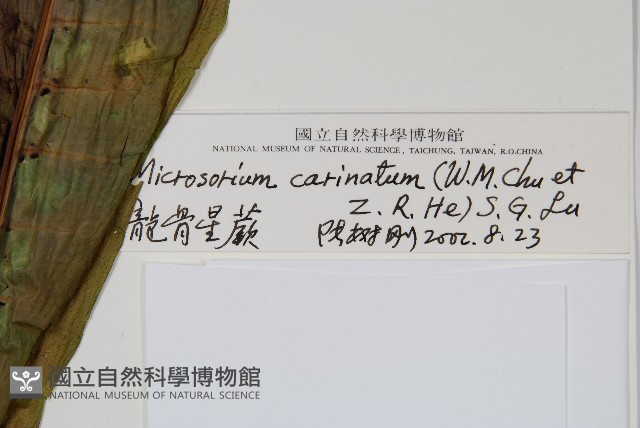 國立自然科學博物館
NATIONAL MUSEUM OF NATURAL SCIENCE, TAICHUNG, TAIWAN, R.O.CHINA
Microsorium carinatum (W.M. Chu et
Z. R. He) S. G. Lu
龍骨星蕨 陳樹剛 2002.8.23
國立自然科學博物館
NATIONAL MUSEUM OF NATURAL SCIENCE